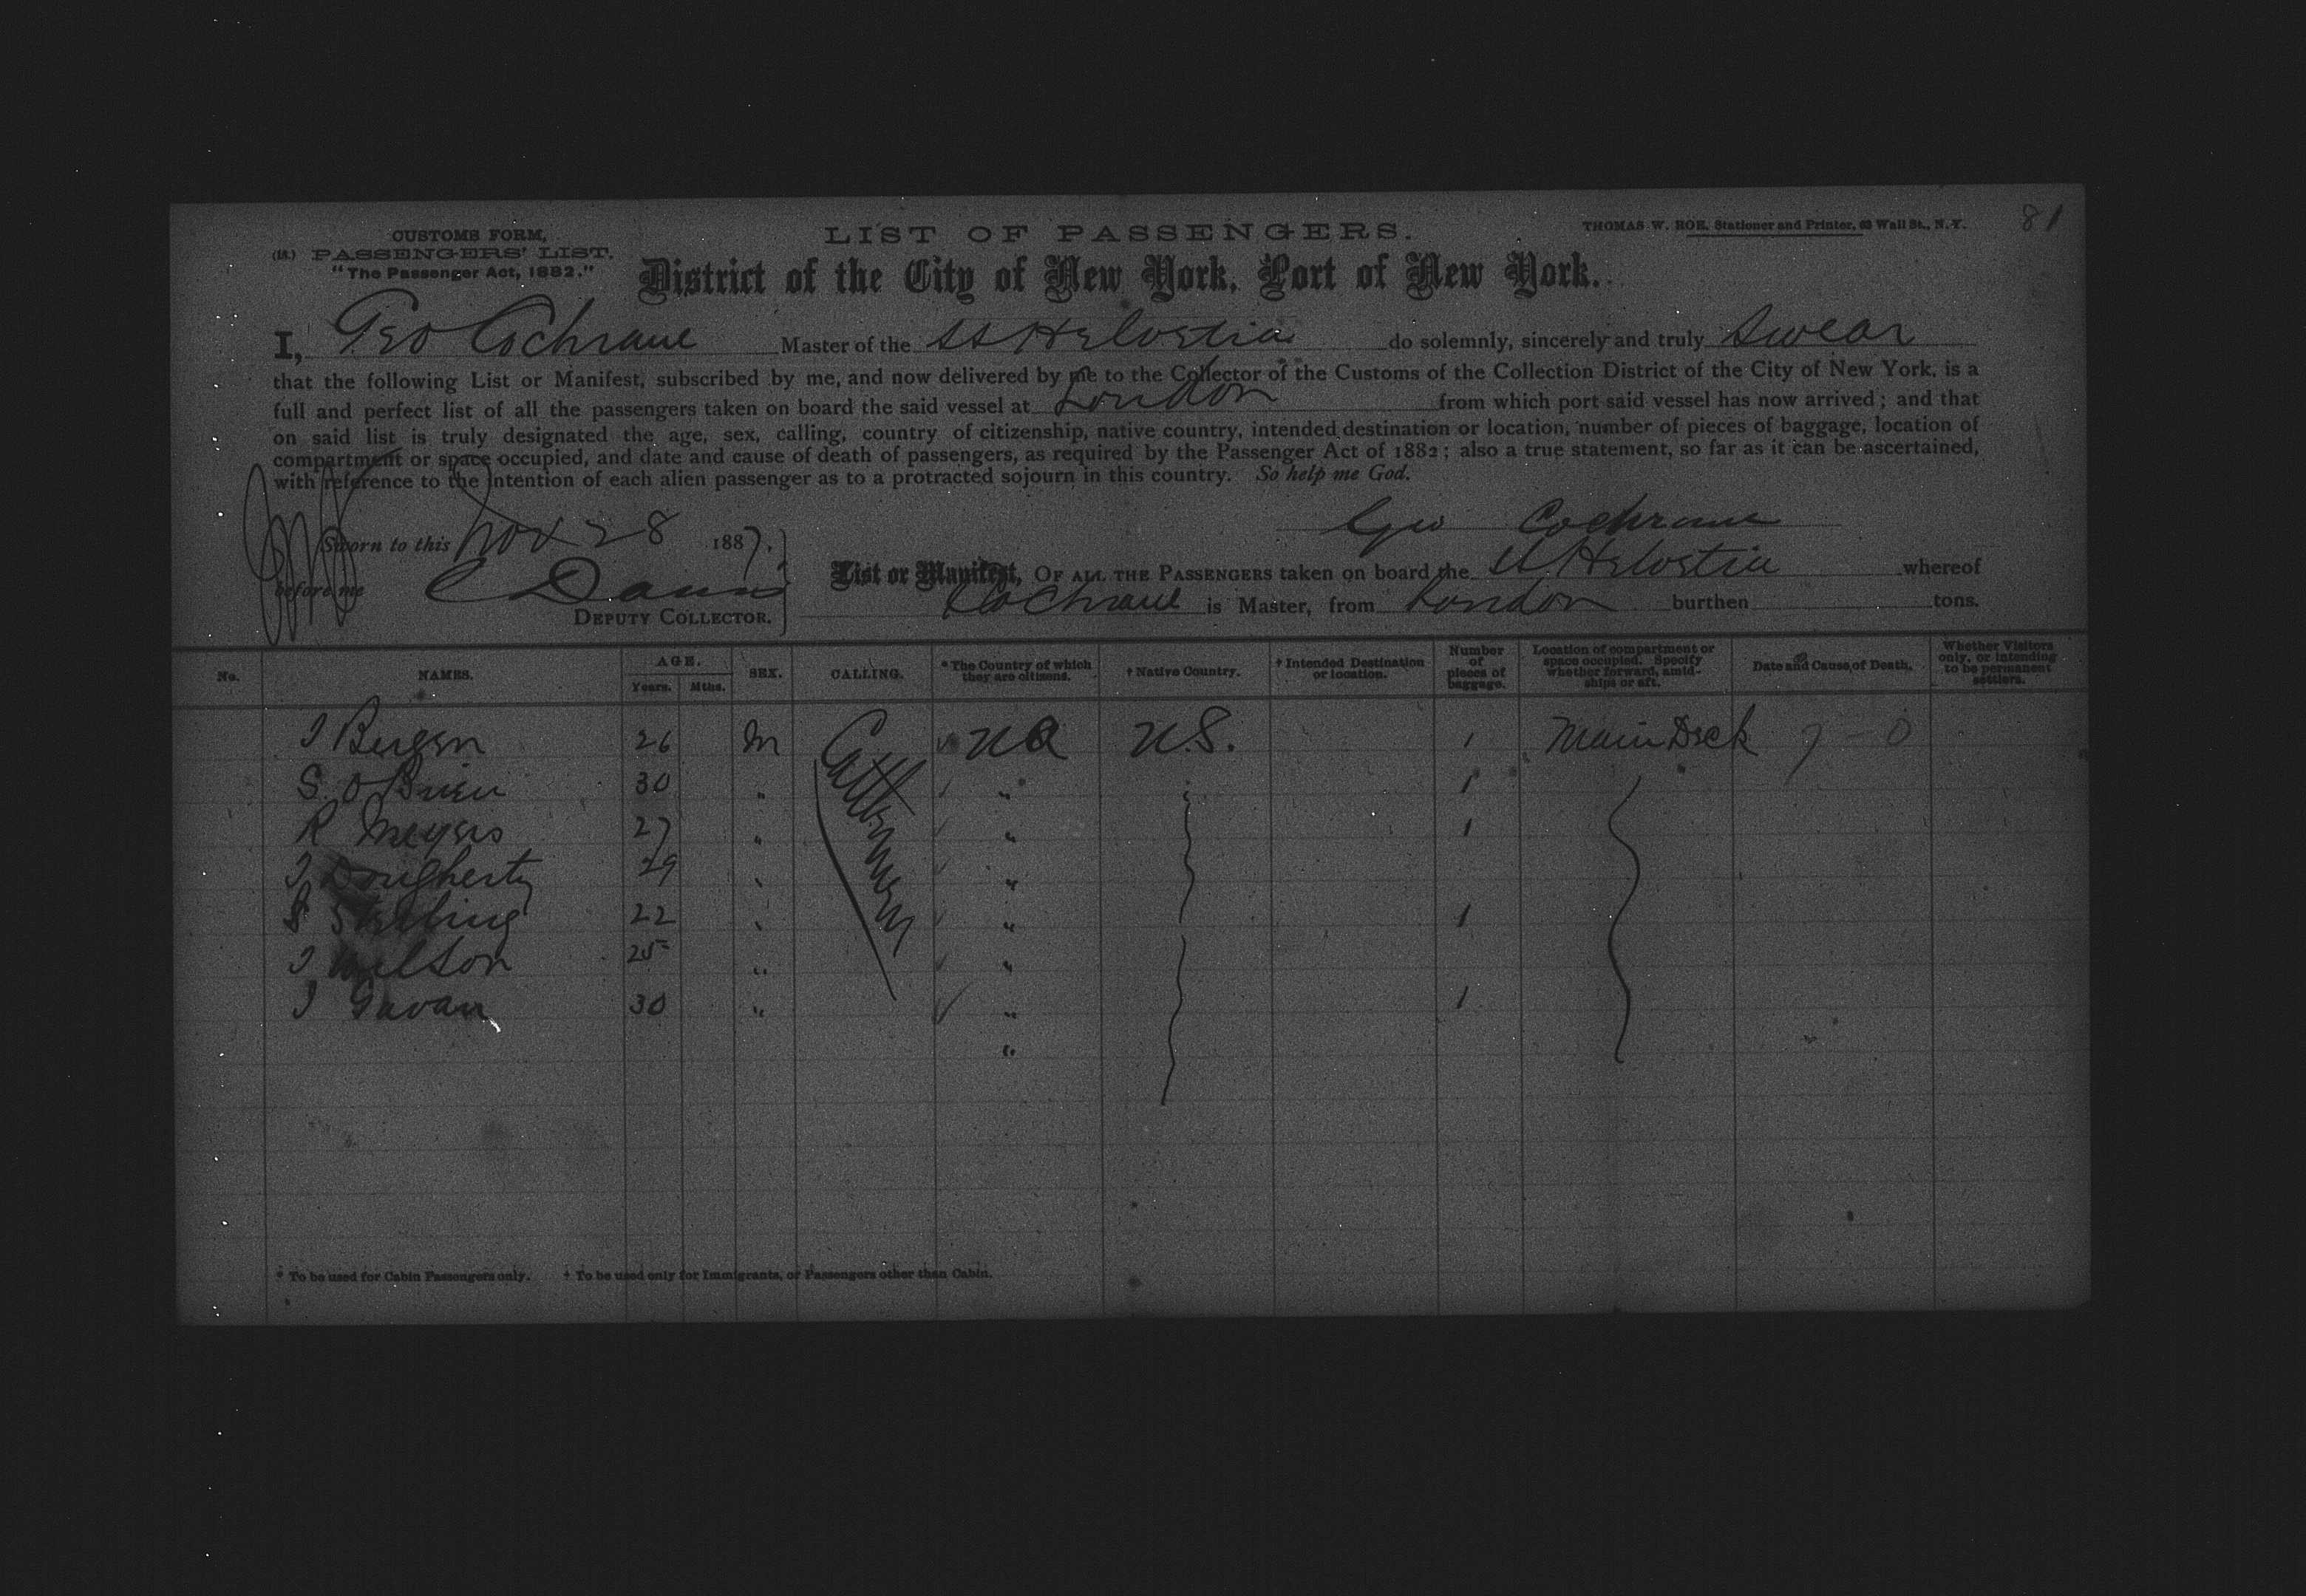 81
CUSTOMS FORM,
(18.) PASSENGERS' LIST.
"The Passenger Act, 1882."
LIST OF PASSENGERS.
THOMAS W. ROE, Stationer and Printer, 63 Wall St., N.Y.
District of the City of New York, Port of New York.
I, Geo Cochrane Master of the SS Helvetia do solemnly, sincerely and truly Swear
that the following List or Manifest, subscribed by me, and now delivered by me to the Collector of the Customs of the Collection District of the City of New York, is a
full and perfect list of all the passengers taken on board the said vessel at London from which port said vessel has now arrived; and that
on said list is truly designated the age, sex, calling, country of citizenship, native country, intended destination or location, number of pieces of baggage, location of
compartment or space occupied, and date and cause of death of passengers, as required by the Passenger Act of 1882; also a true statement, so far as it can be ascertained,
with reference to the intention of each alien passenger as to a protracted sojourn in this country. So help me God.
Geo Cochrane
Sworn to this Nov 28 1887.
before me
DEPUTY COLLECTOR.
List or Manifest, OF ALL THE PASSENGERS taken on board the SS Helvetia whereof
Cochrane is Master, from London burthen tons.
No. NAMES. AGE. Years. Mths. SEX. CALLING. * The Country of which they are citizens. † Native Country. † Intended Destination or location. Number of pieces of baggage. Location of compartment or space occupied. Specify whether forward, amidships or aft. Date and Cause of Death. Whether Visitors only, or intending to be permanent settlers.
J Bergen 26 M Cattlemen U.S. 1 Main Deck 7 - 0
S. O Brien 30 " " " 1
R Meyers 27 " " 1
J Dougherty 29 " "
S Sterling 22 " " 1
J Wilson 25 " "
J Gavan 30 " " 1
"
* To be used for Cabin Passengers only. † To be used only for Immigrants, or Passengers other than Cabin.